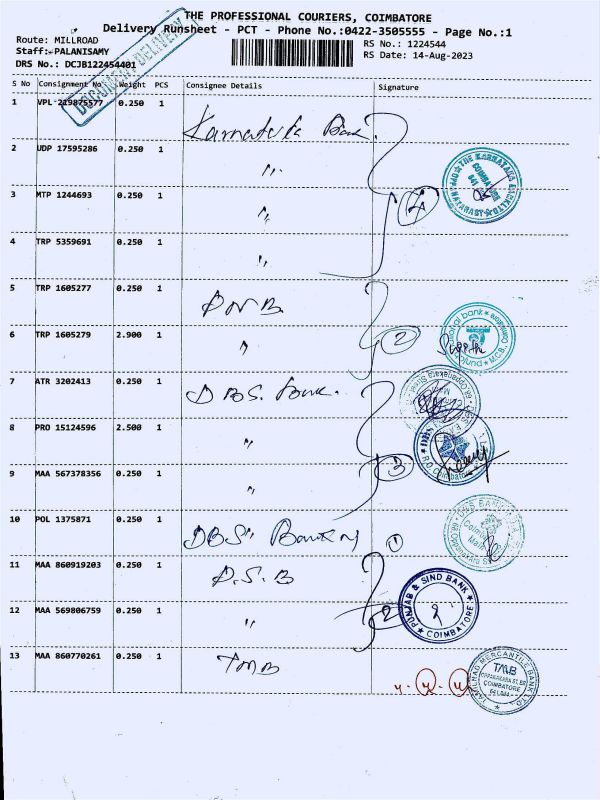 THE PROFESSIONAL COURIERS, COIMBATORE
Delivery Runsheet - PCT - Phone No.:0422-3505555 - Page No.:1
Route: MILLROAD
RS No.: 1224544
Staff: PALANISAMY
RS Date: 14-Aug-2023
DRS No.: DCJB122454401
DOCUMENT DELIVERY
S No Consignment No Weight PCS Consignee Details Signature
1 VPL 219875577 0.250 1 Karnataka Bank
2 UDP 17595286 0.250 1 "
3 MTP 1244693 0.250 1 "
4
THE KARNATAKA BANK LTD
COIMBATORE
4 TRP 5359691 0.250 1 "
5 TRP 1605277 0.250 1 PNB
6 TRP 1605279 2.900 1 "
2
7 ATR 3202413 0.250 1 DBS. Bank.
8 PRO 15124596 2.500 1 "
3
9 MAA 567378356 0.250 1 "
10 POL 1375871 0.250 1 DBS Bank
1
11 MAA 860919203 0.250 1 P.S.B
12 MAA 569806759 0.250 1 "
2
PUNJAB & SIND BANK
COIMBATORE
13 MAA 860770261 0.250 1 TMB
TAMILNAD MERCANTILE BANK LTD
TMB
OPPANAKARA ST, BR
COIMBATORE